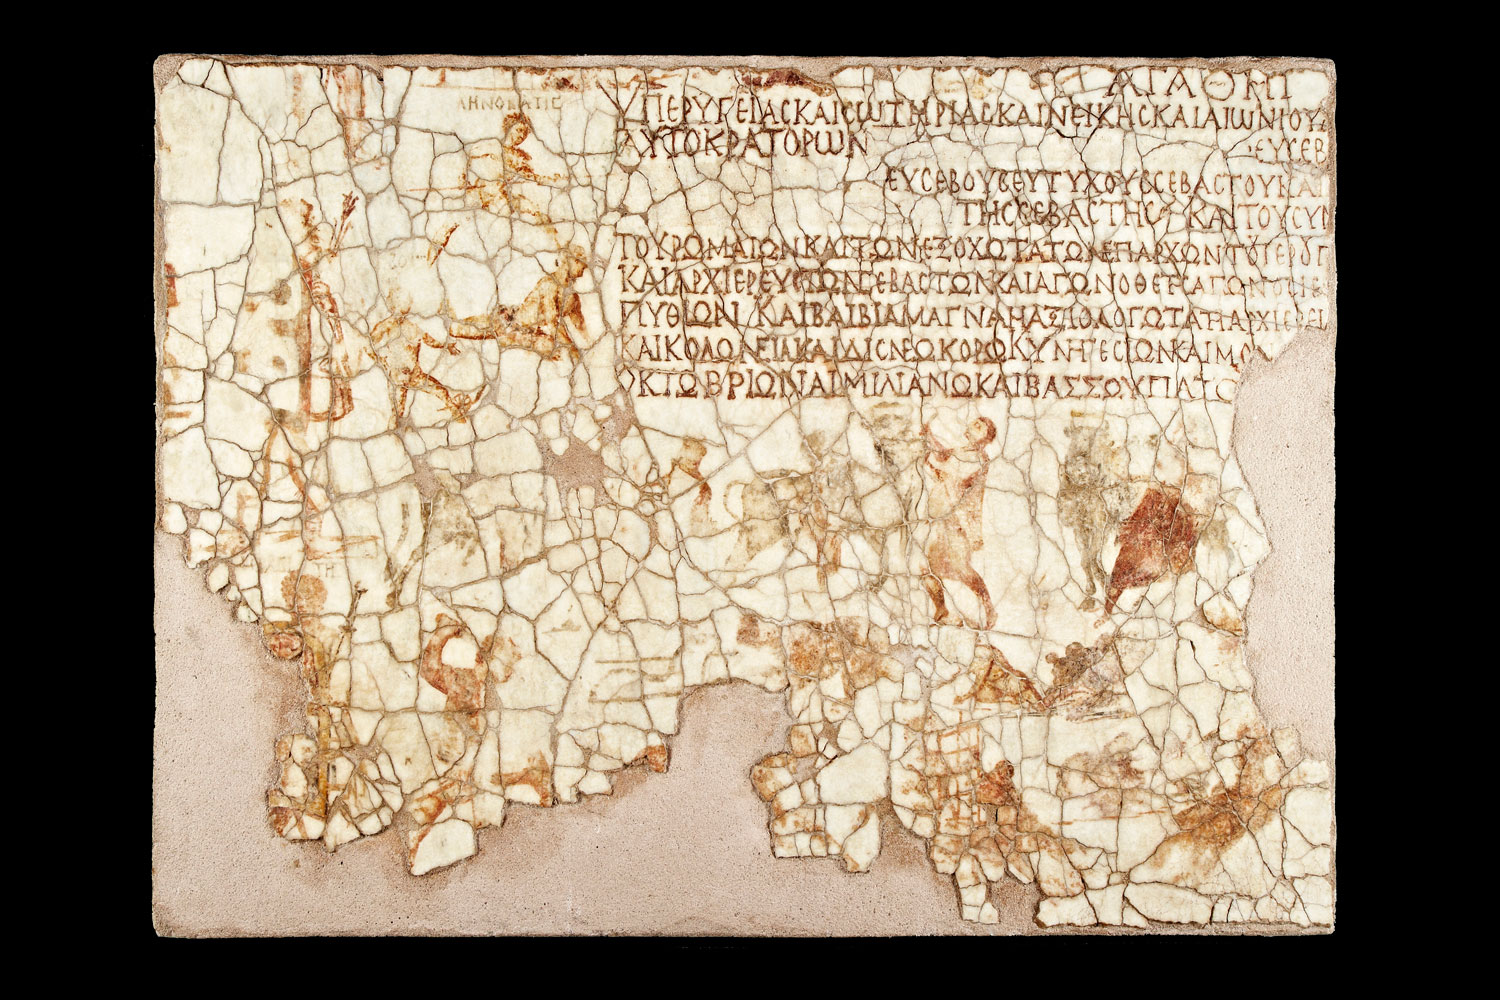 ΑΓΑΘΗΙ
ΥΠΕΡΥΓΕΙΑΣΚΑΙΣΩΤΗΡΙΑΣΚΑΙΝΕΙΚΗΣΚΑΙΑΙΩΝΙΟΥΔ
ΑΥΤΟΚΡΑΤΟΡΩΝ ΕΥΣΕΒ
ΕΥΣΕΒΟΥΣΕΥΤΥΧΟΥΣΣΕΒΑΣΤΟΥΚΑΙ
ΤΗΣΣΕΒΑΣΤΗΣ ΚΑΙΤΟΥΣΥΝ
ΤΟΥΡΩΜΑΙΩΝΚΑΙΤΩΝΕΞΟΧΩΤΑΤΩΝΕΠΑΡΧΩΝΤΟΥΙΕΡΟΥΠ
ΚΑΙΑΡΧΙΕΡΕΥΣΤΩΝΣΕΒΑΣΤΩΝΚΑΙΑΓΩΝΟΘΕΤΗΣΑΓΩΝΟΣ
ΠΥΘΙΩΝ ΚΑΙΒΑΙΒΙΑΜΑΓΝΑΗΑΞΙΟΛΟΓΩΤΑΤΗΑΡΧΙΕΡΕΙ
ΚΑΙΚΟΛΩΝΕΙΑΚΑΙΔΙΣΝΕΩΚΟΡΩΚΥΝΗΓΕΣΙΩΝΚΑΙΜΟ
ΟΚΤΩΒΡΙΩΝΑΙΜΙΛΙΑΝΩΚΑΙΒΑΣΣΩΥΠΑΤΟ